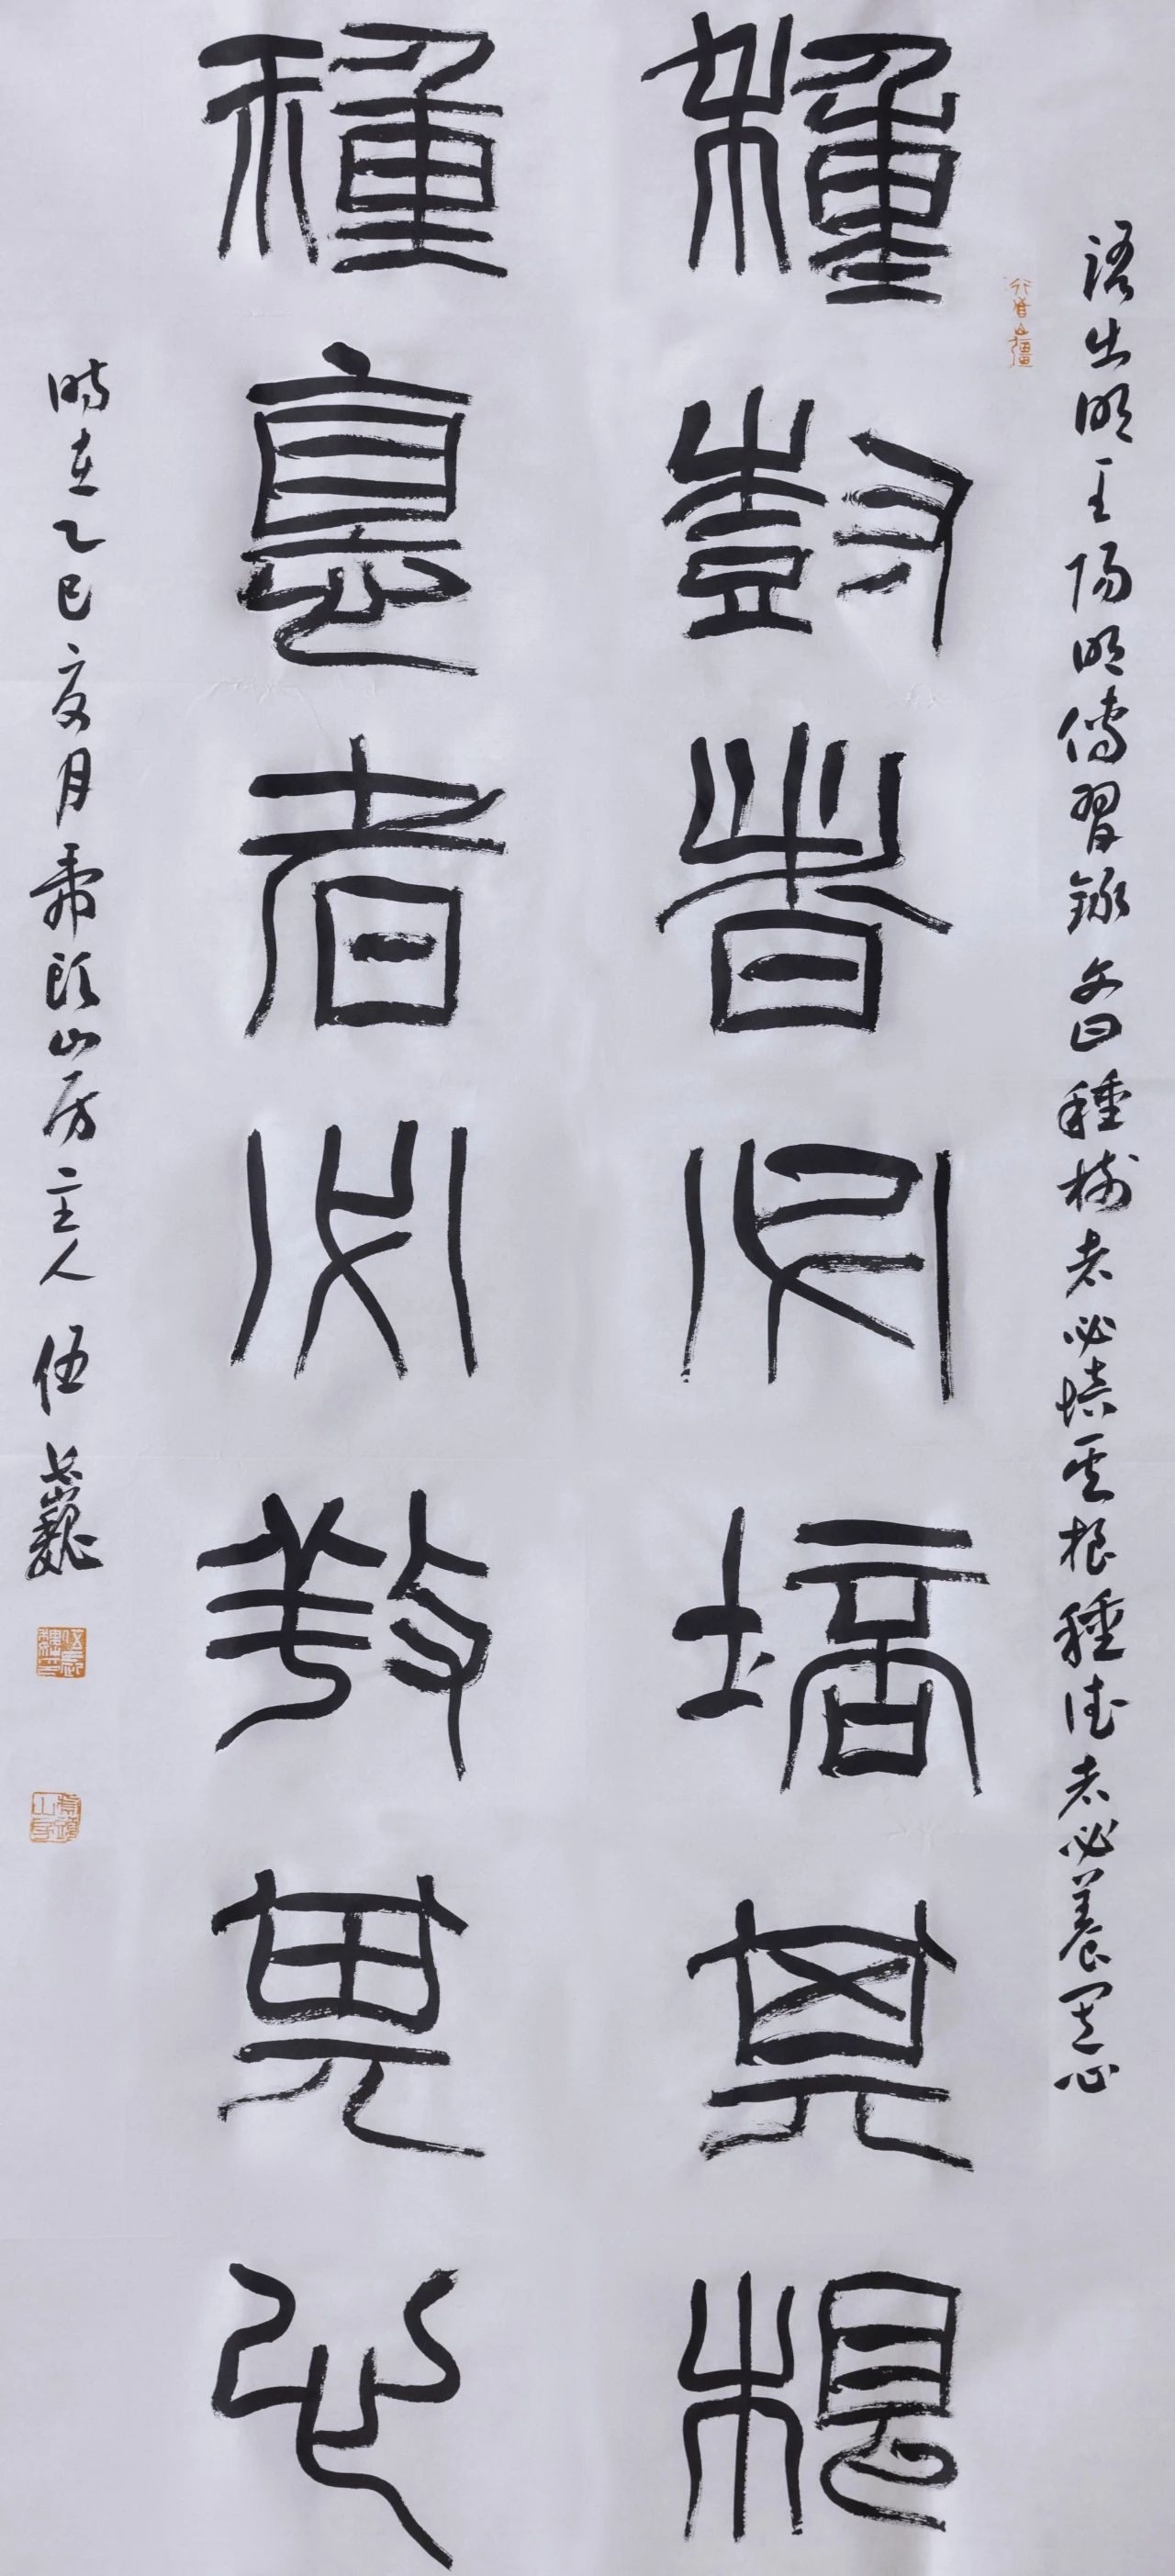 語出明王陽明傳習錄文曰種樹者必培其根種德者必養其心
種尌者必培其根
種悳者必養其心
時在乙巳夏月南山房主人伍巍